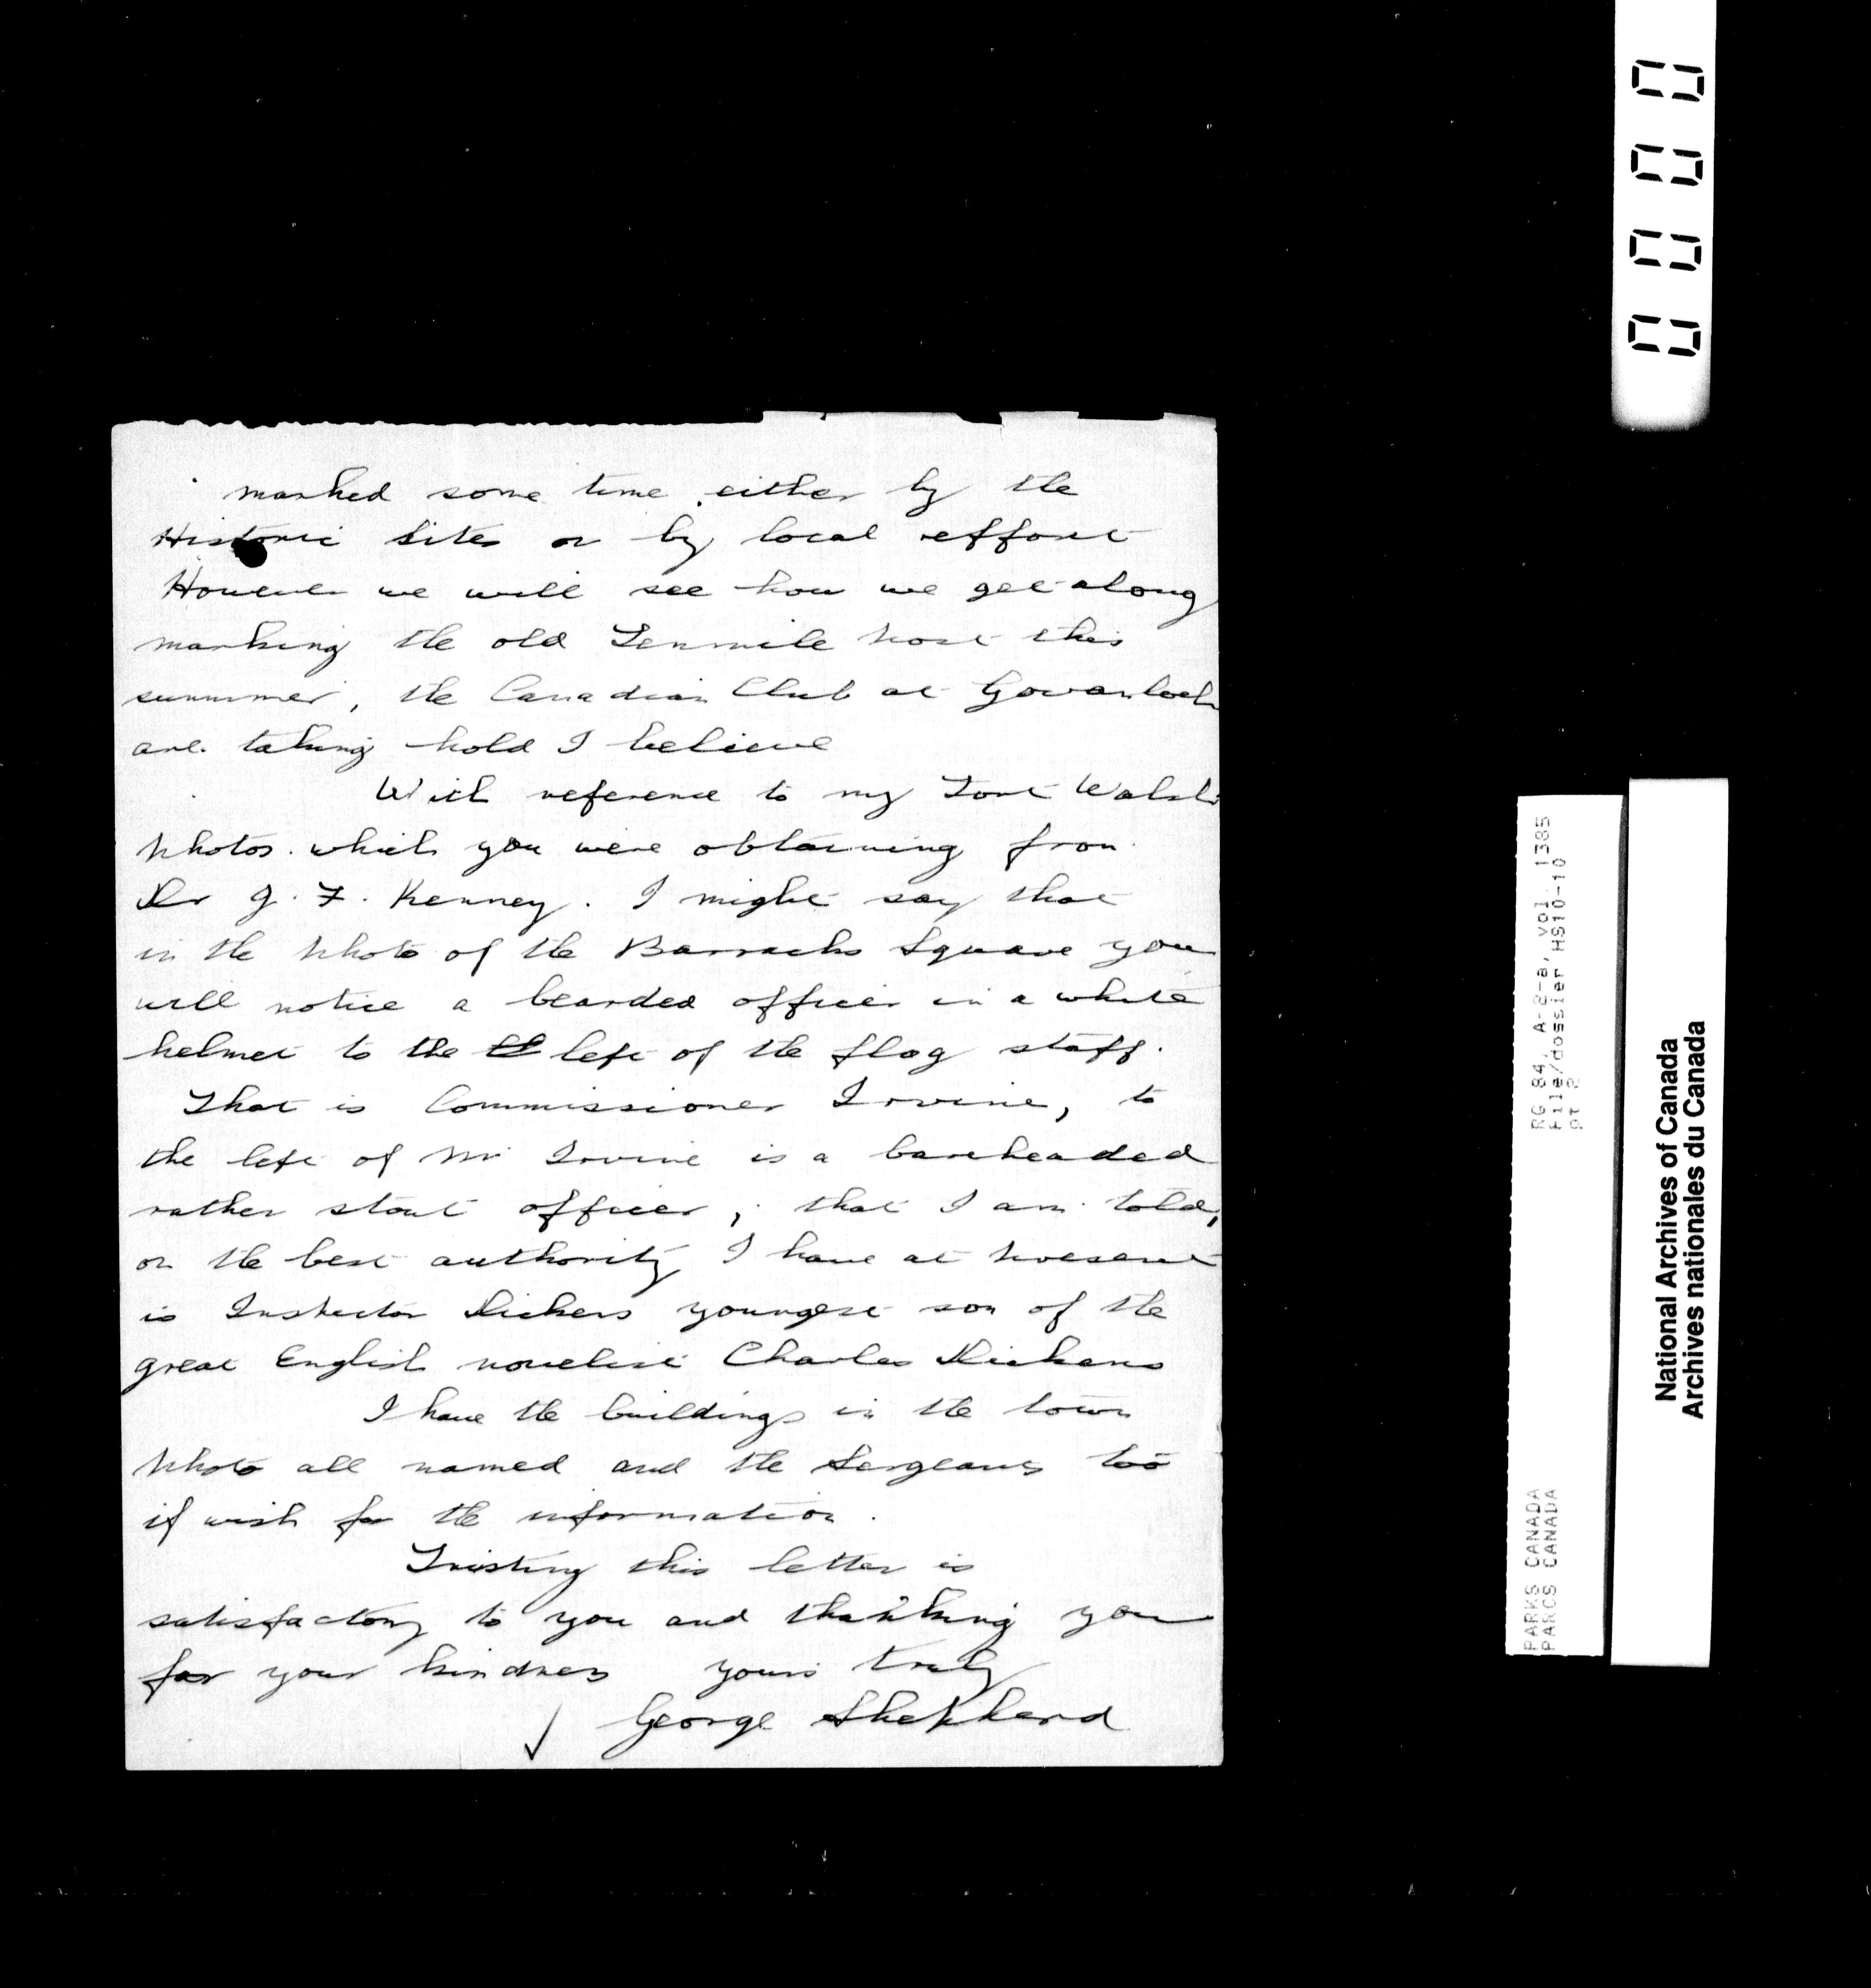 marked some time either by the
Historic Sites or by local effort
However we will see how we get along
marking the old Tenmile post this
summer, the Canadian Club at Govanlock
are taking hold I believe
With reference to my Fort Walsh
photos which you were obtaining from
Dr J. F. Kenney. I might say that
in the photo of the Barracks Square you
will notice a bearded officer in a white
helmet to the left of the flag staff.
That is Commissioner Irvine, to
the left of Mr Irvine is a bareheaded
rather stout officer, that I am told,
on the best authority I have at present
is Inspector Dickens youngest son of the
great English novelist Charles Dickens
I have the buildings in the town
photo all named and the Sergeants too
if wish for the information.
Trusting this letter is
satisfactory to you and thanking you
for your kindness yours truly
George Shepherd
0000
RG 84, A-2-a, vol. 1385
File/dossier HS10-10
pt 2
PARKS CANADA
PARCS CANADA
National Archives of Canada
Archives nationales du Canada